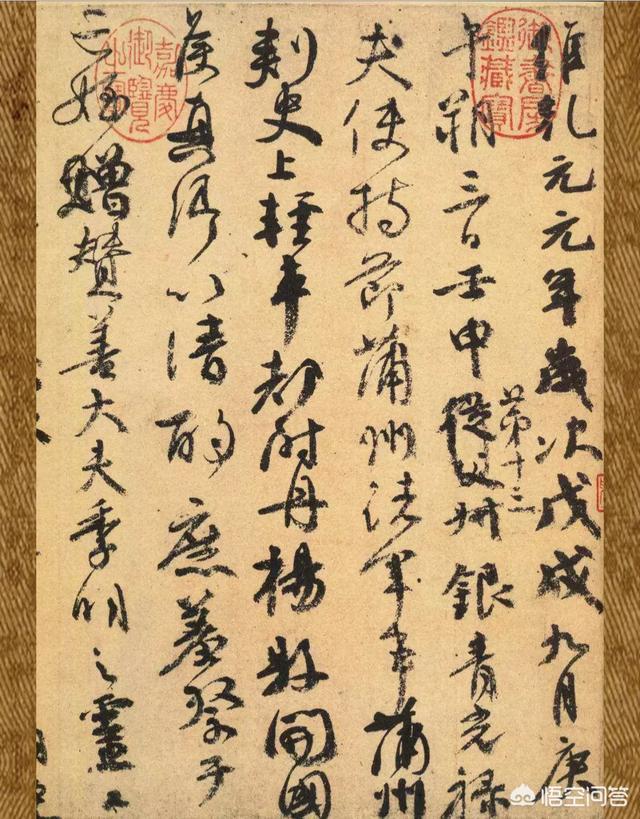 維乾元元年歲次戊戌九月庚
午朔三日壬申從父叔銀青光祿
第十三
夫使持節蒲州諸軍事蒲州
刺史上輕車都尉丹楊縣開國
侯真卿以清酌庶羞祭于
亡姪贈贊善大夫季明之靈曰
御書房鑑藏寶
嘉慶御覽之寶
悟空问答